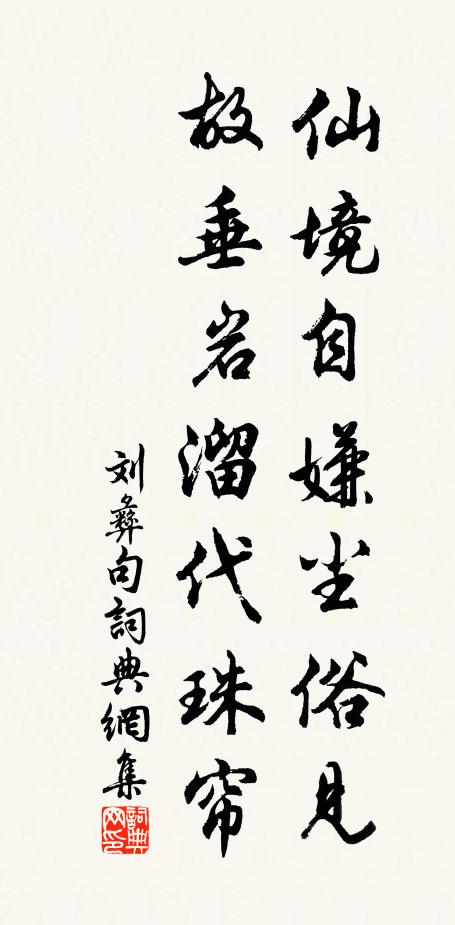 仙境自嫌尘俗见
故垂岩溜代珠帘
刘彝句詞典網集
詞典网印